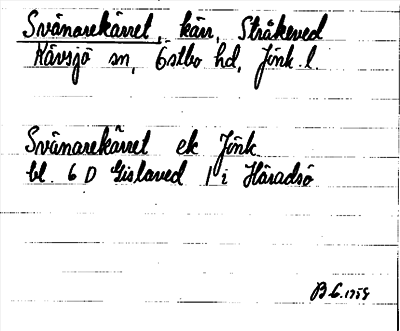 Svänarekärret, kärr, Stråkeved
Kävsjö sn, Östbo hd, Jönk. l.
Svänarekärret ek Jönk
bl. 6 D Gislaved 1 i Häradsö
B G. 1958